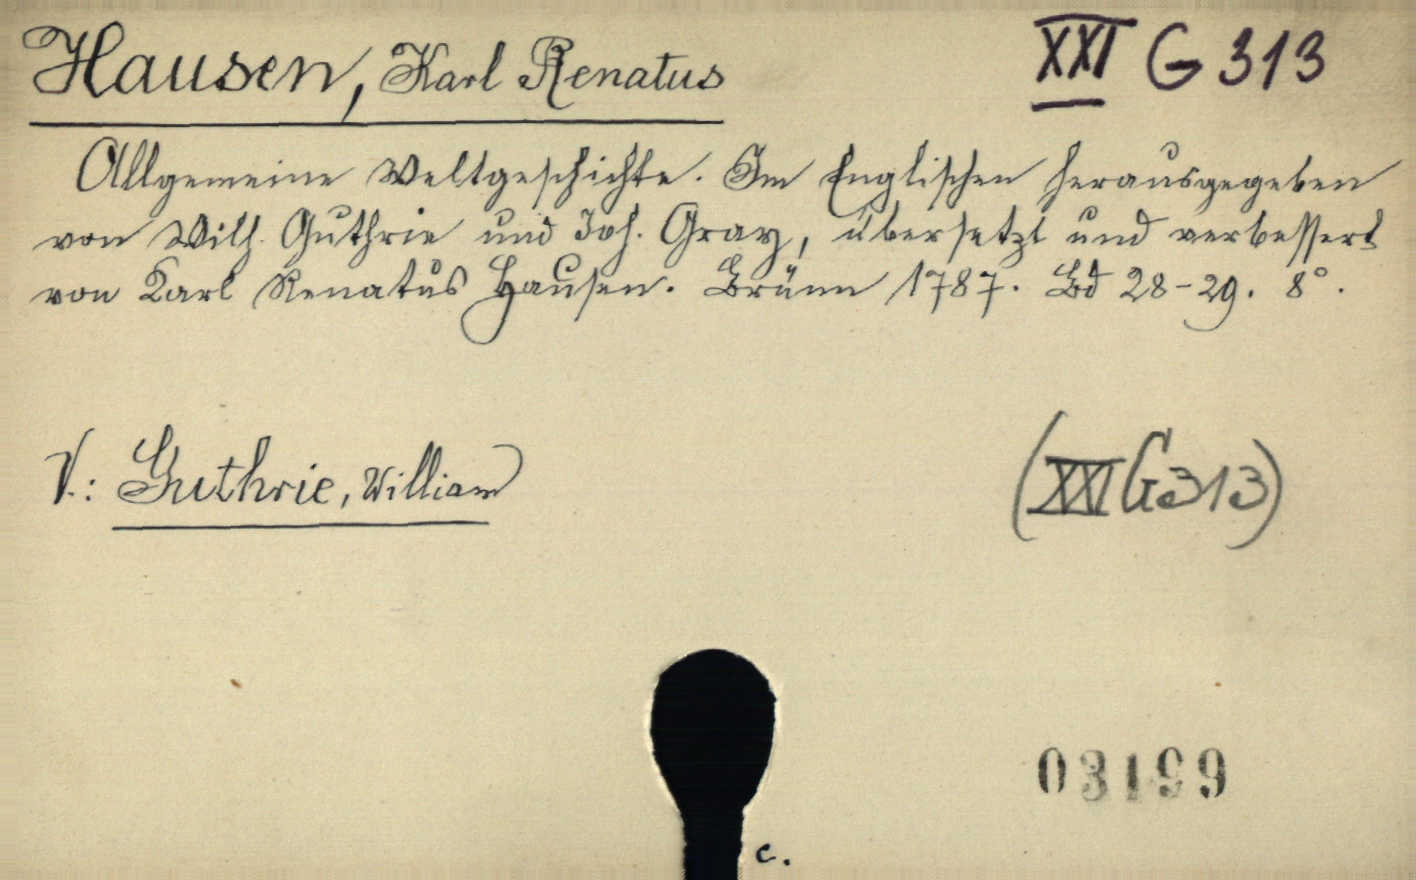 Hausen, Karl Renatus
XXI G 313
Allgemeine Weltgeschichte. Im Englischen herausgegeben
von Wilh. Guthrie und Joh. Gray, übersetzt und verbessert
von Karl Renatus Hausen. Brünn 1787. Bd 28-29. 8°.
V.: Guthrie, William
(XXI G 313)
03199
c.